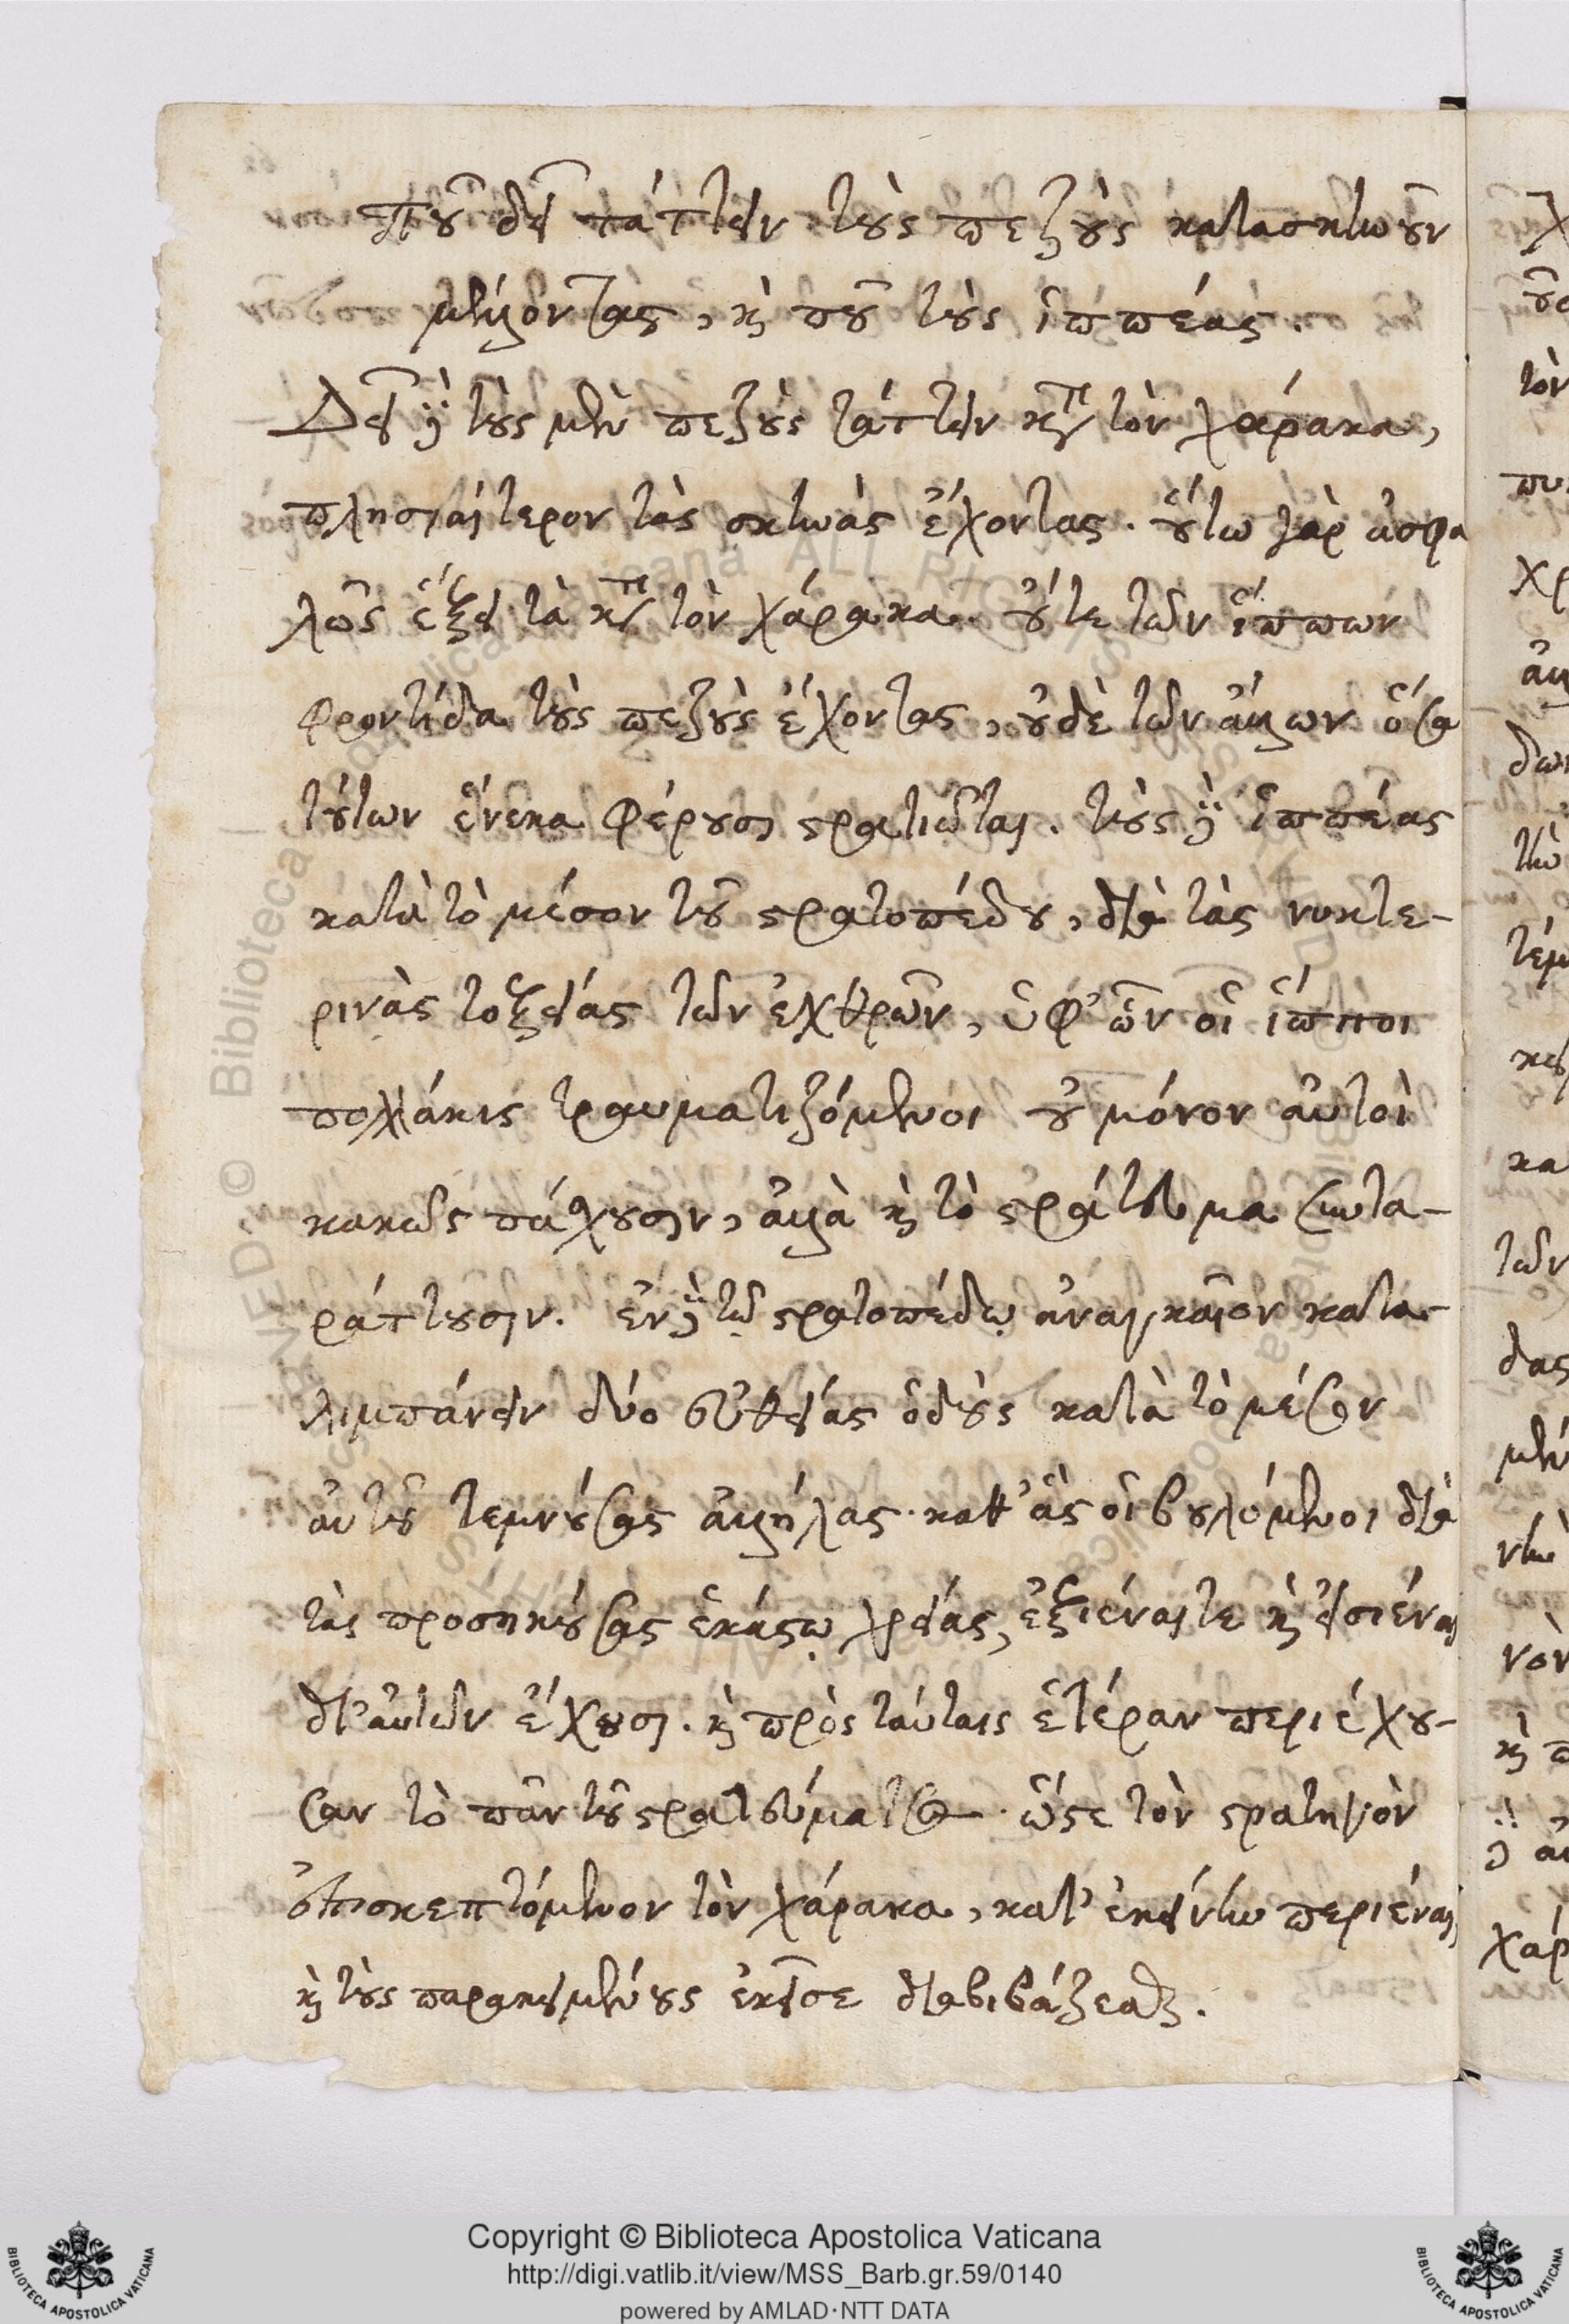 ποῦ δεῖ τάττειν τοὺς πεζοὺς κατασκηνοῦν
μέλλοντας, καὶ ποῦ τοὺς ἱππέας.
Δεῖ δὲ τοὺς μὲν πεζοὺς τάττειν κατὰ τὸν χάρακα,
πλησιαίτερον τὰς σκηνὰς ἔχοντας. οὕτω γὰρ ἀσφα
λῶς ἕξει τὰ κατὰ τὸν χάρακα. οὔτε τῶν ἵππων
φροντίδα τοὺς πεζοὺς ἔχοντας, οὐδὲ τῶν ἄλλων ὅσα
τούτων ἕνεκα φέρουσι στρατιῶται. τοὺς δὲ ἱππέας
κατὰ τὸ μέσον τοῦ στρατοπέδου, διὰ τὰς νυκτε-
ρινὰς τοξείας τῶν ἐχθρῶν, ὑφ' ὧν οἱ ἵπποι
πολλάκις τραυματιζόμενοι οὐ μόνον αὐτοὶ
κακῶς πάσχουσιν, ἀλλὰ καὶ τὸ στράτευμα συντα-
ράττουσιν. ἐν δὲ τῷ στρατοπέδῳ ἀναγκαῖον κατα-
λιμπάνειν δύο εὐθείας ὁδοὺς κατὰ τὸ μέσον
αὐτοῦ τεμνούσας ἀλλήλας. καθ' ἃς οἱ βουλόμενοι διὰ
τὰς προσηκούσας ἑκάστῳ χρείας, ἐξιέναι τε καὶ εἰσιέναι
δι' αὐτῶν ἔχουσι. καὶ πρὸς ταύταις ἑτέραν περιέχου-
σαν τὸ πᾶν τοῦ στρατεύματος. ὥστε τὸν στρατηγὸν
ἐπισκεπτόμενον τὸν χάρακα, κατ' ἐκείνην περιέναι
καὶ τοὺς παρακειμένους ἐκεῖσε διαβιβάζεσθαι.
Copyright © Biblioteca Apostolica Vaticana
http://digi.vatlib.it/view/MSS_Barb.gr.59/0140
powered by AMLAD·NTT DATA